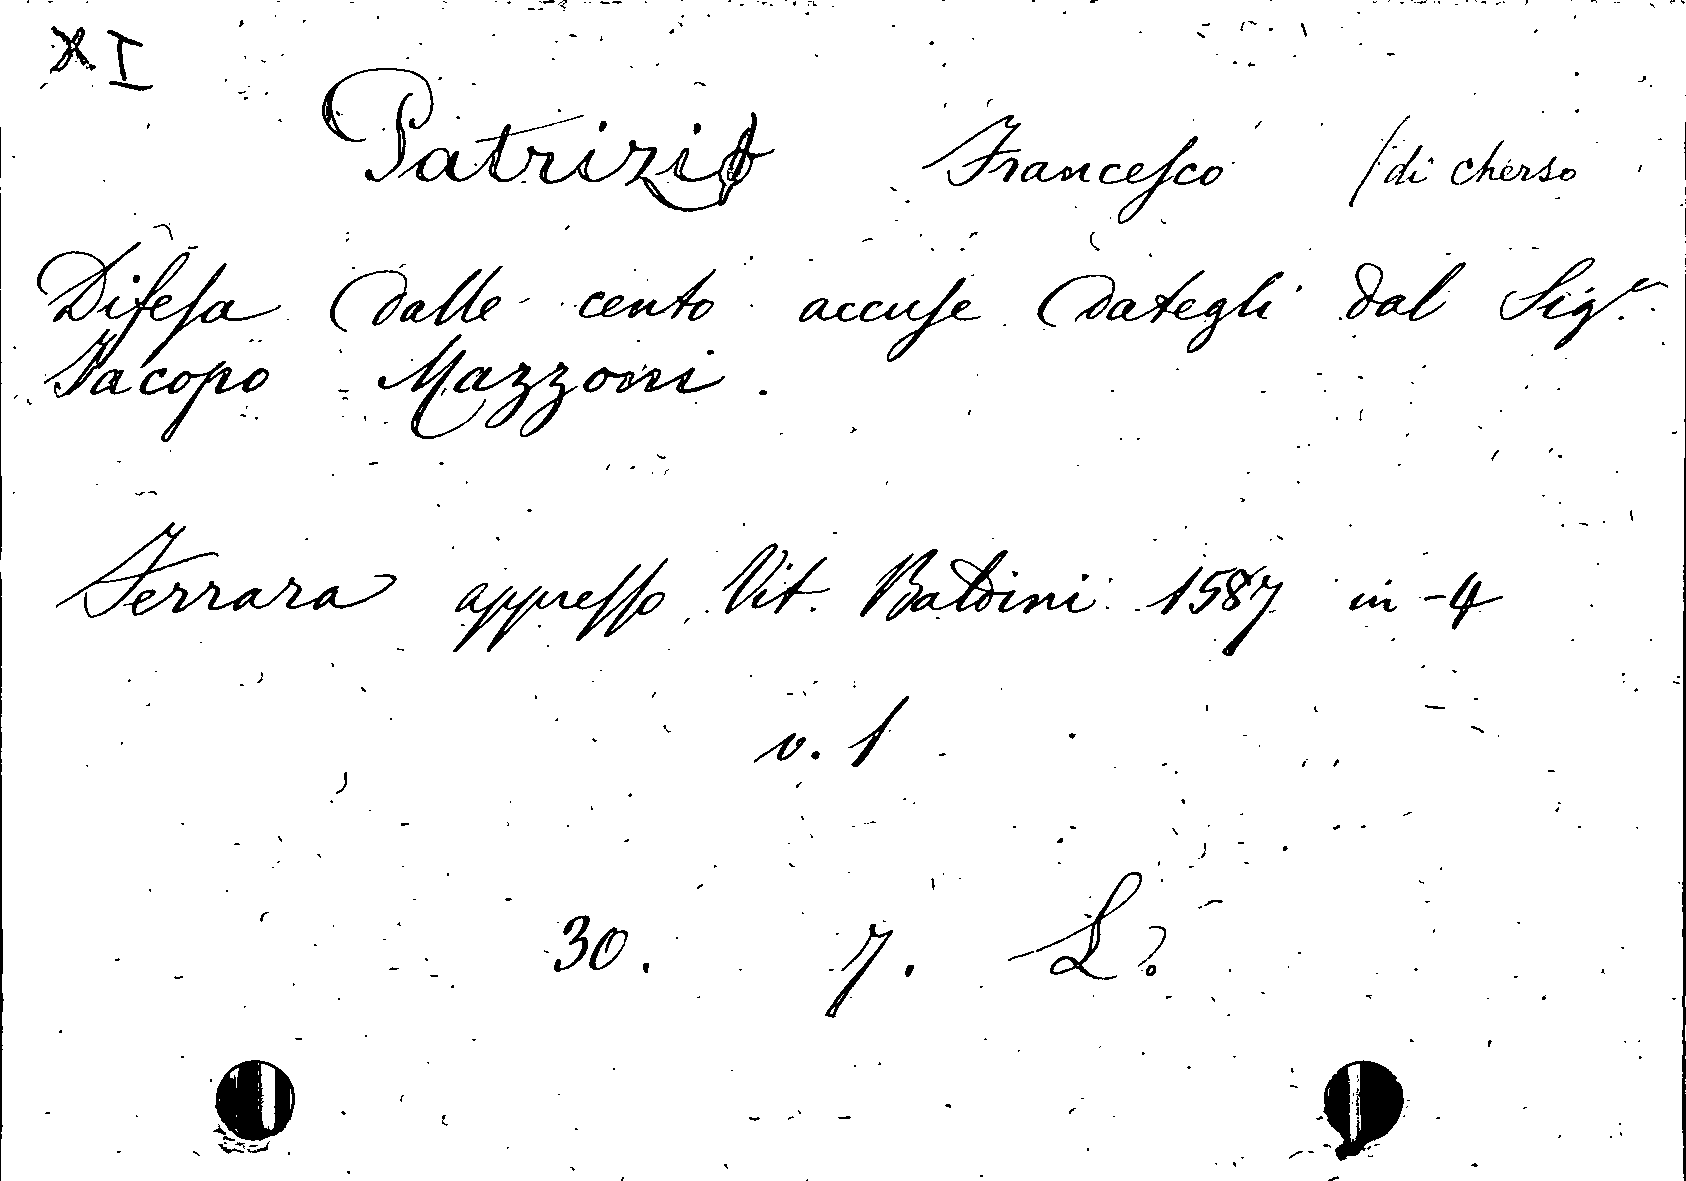 XI
Patrizio Francesco /di Cherso
Difesa dalle cento accuse dategli dal Sig.r
Jacopo Mazzoni.
Ferrara appresso Vit. Baldini 1587 in-4
v. 1
30. 7. L?